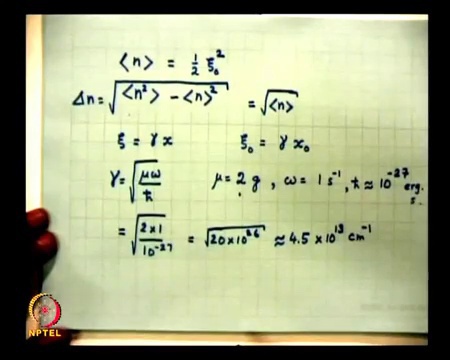 <n> = 1/2 ξ₀²
Δn = √(<n²> - <n>²) = √<n>
ξ = γ x ξ₀ = γ x₀
γ = √(μω/ħ) μ = 2 g , ω = 1 s⁻¹, ħ ≈ 10⁻²⁷ erg. s.
= √(2 x 1/10⁻²⁷) = √(20 x 10²⁶) ≈ 4.5 x 10¹³ cm⁻¹
NPTEL